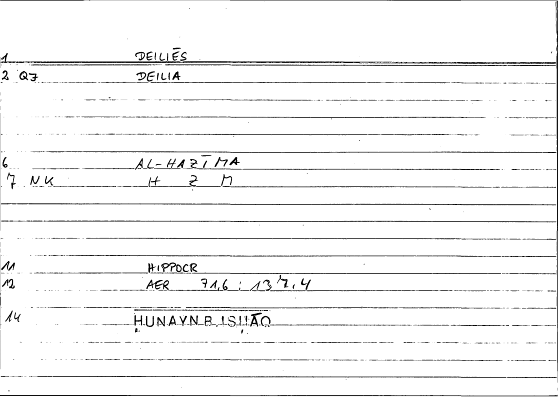 1 DEILIĒS
2 Q7 DEILIA
6 AL-HAZĪMA
7 NK H Z M
11 HIPPOCR
12 AER 71,6 : 137,4
14 ḤUNAYN B. ISḤĀQ